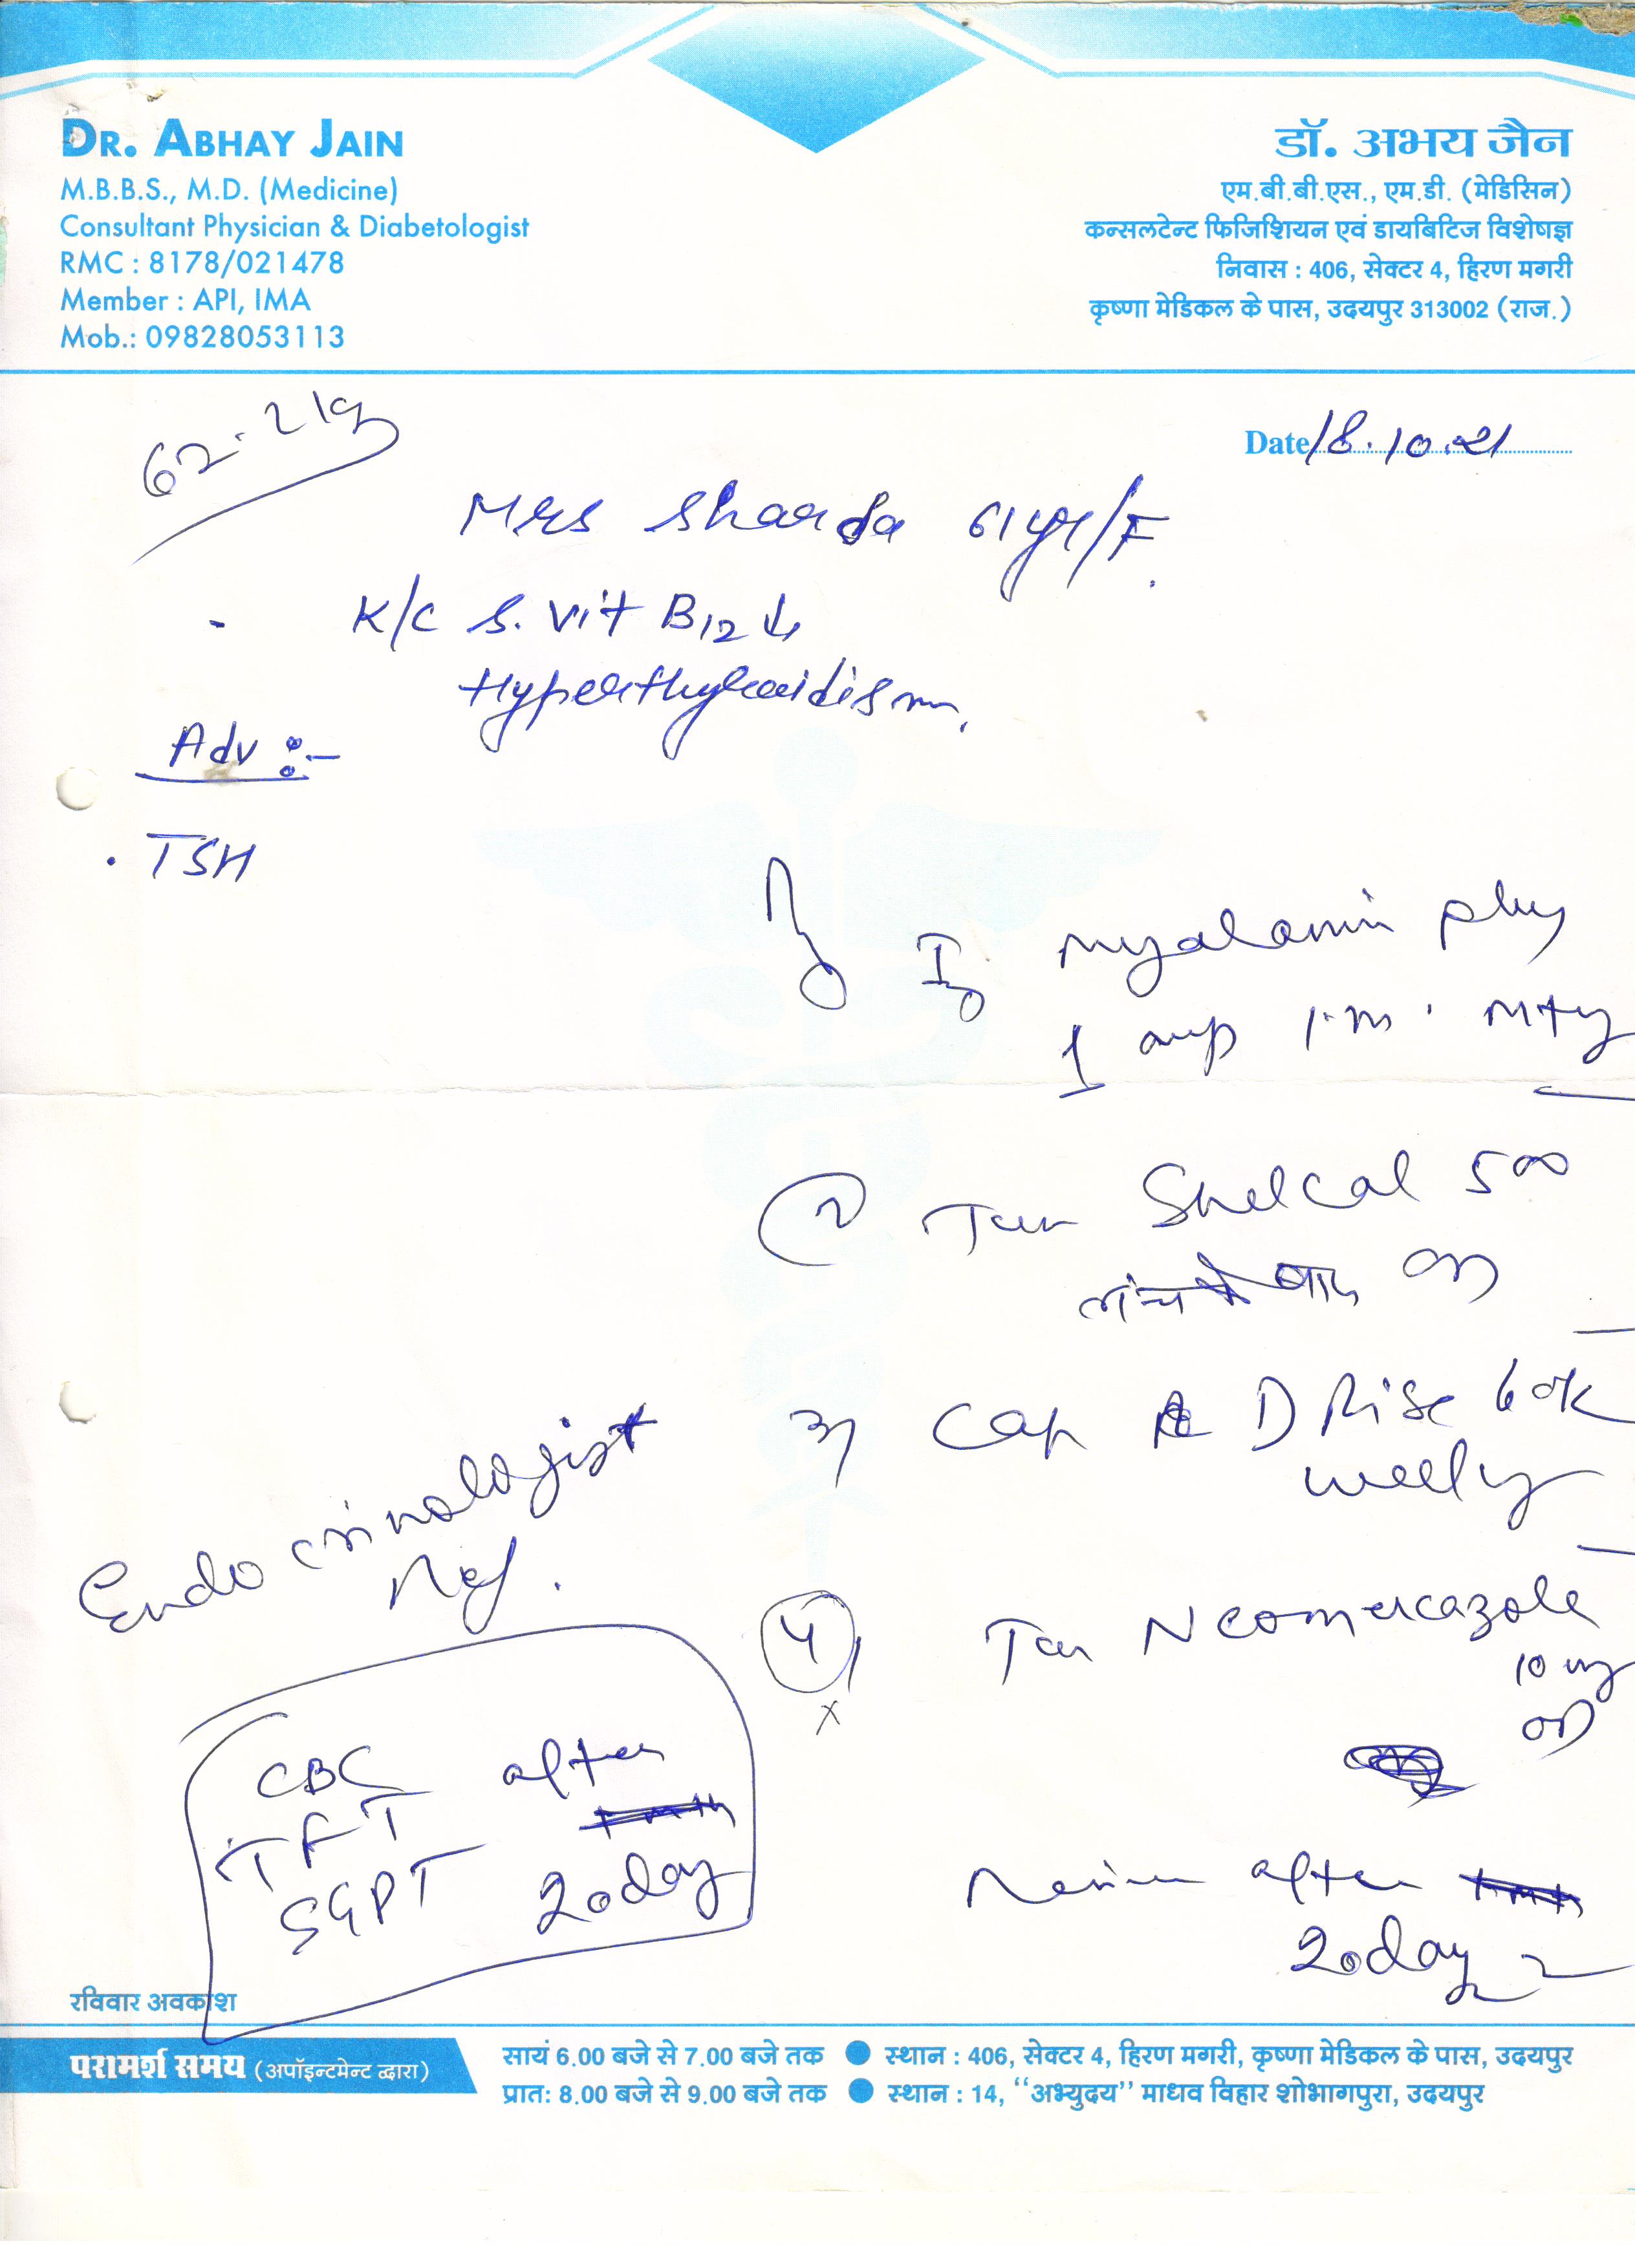 DR. ABHAY JAIN
M.B.B.S., M.D. (Medicine)
Consultant Physician & Diabetologist
RMC : 8178/021478
Member : API, IMA
Mob.: 09828053113
डॉ. अभय जैन
एम.बी.बी.एस., एम.डी. (मेडिसिन)
कन्सलटेन्ट फिजिशियन एवं डायबिटिज विशेषज्ञ
निवास : 406, सेक्टर 4, हिरण मगरी
कृष्णा मेडिकल के पास, उदयपुर 313002 (राज.)
Date 18.10.21
Mrs Sharda 61yr/F
K/C S. Vit B12 ↓
Hyperthyroidism
Adv :-
TSH
myalamin plus
1 amp I.M.
2 Shelcal 500
लंच के बाद
3) Cap D Rise 60K
weekly
4) Neomercazole
10 mg
OD
Endocrinologist
Ref.
CBC after
TFT
SGPT 20 day
after
20 day
रविवार अवकाश
परामर्श समय (अपॉइन्टमेन्ट द्वारा)
सायं 6.00 बजे से 7.00 बजे तक ● स्थान : 406, सेक्टर 4, हिरण मगरी, कृष्णा मेडिकल के पास, उदयपुर
प्रात: 8.00 बजे से 9.00 बजे तक ● स्थान : 14, "अभ्युदय" माधव विहार शोभागपुरा, उदयपुर